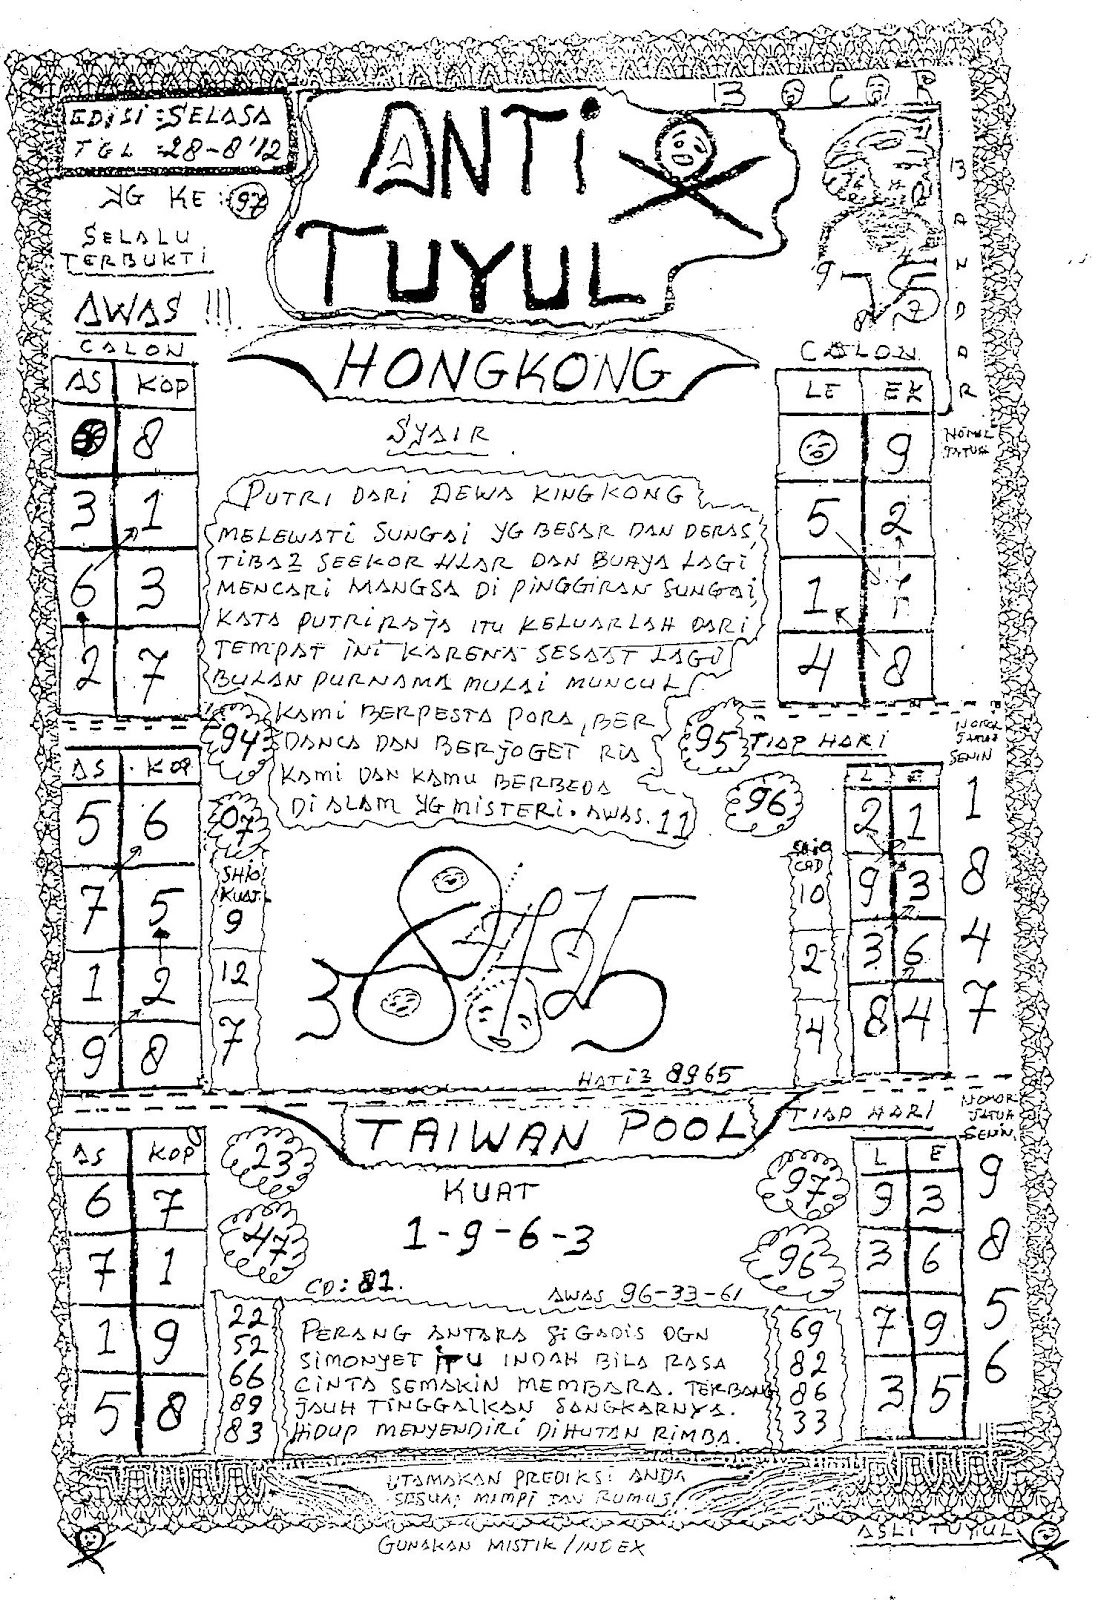 EDISI : SELASA
TGL : 28-8'12
YG KE : 97
SELALU
TERBUKTI
AWAS !!!
BOCOR
BANDAR
ANTI
TUYUL
HONGKONG
CALON
AS KOP
8
3 1
6 3
2 7
SYAIR
PUTRI DARI DEWA KINGKONG
MELEWATI SUNGAI YG BESAR DAN DERAS,
TIBA2 SEEKOR ULAR DAN BUAYA LAGI
MENCARI MANGSA DI PINGGIRAN SUNGAI,
KATA PUTRI RAJA ITU KELUARLAH DARI
TEMPAT INI KARENA SESAAT LAGI
BULAN PURNAMA MULAI MUNCUL
KAMI BERPESTA PORA, BER
DANCA DAN BERJOGET RIA
KAMI DAN KAMU BERBEDA
DI ALAM YG MISTERI. AWAS. 11
CALON
LE EK
9
5 2
1
4 8
94
07
95
96
AS KOP
5 6
7 5
1 2
9 8
SHIO
KUAT
9
12
7
HATI2 8965
TIAP HARI
SHIO
CAD
10
2
4
L E
2 1
9 3
3 6
8 4
NOMOR
JATUH
SENIN
1
8
4
7
TAIWAN POOL
KUAT
1-9-6-3
CD: 81.
AWAS 96-33-61
AS KOP
6 7
7 1
1 9
5 8
23
47
22
52
66
89
83
PERANG ANTARA SI GADIS DGN
SIMONYET ITU INDAH BILA RASA
CINTA SEMAKIN MEMBARA. TERBANG
JAUH TINGGALKAN SANGKARNYA.
HIDUP MENYENDIRI DIHUTAN RIMBA.
97
96
69
82
86
33
TIAP HARI
L E
9 3
3 6
7 9
3 5
NOMOR
JATUH
SENIN
9
8
5
6
UTAMAKAN PREDIKSI ANDA
SESUAI MIMPI DAN RUMUS
GUNAKAN MISTIK/INDEX
ASLI TUYUL